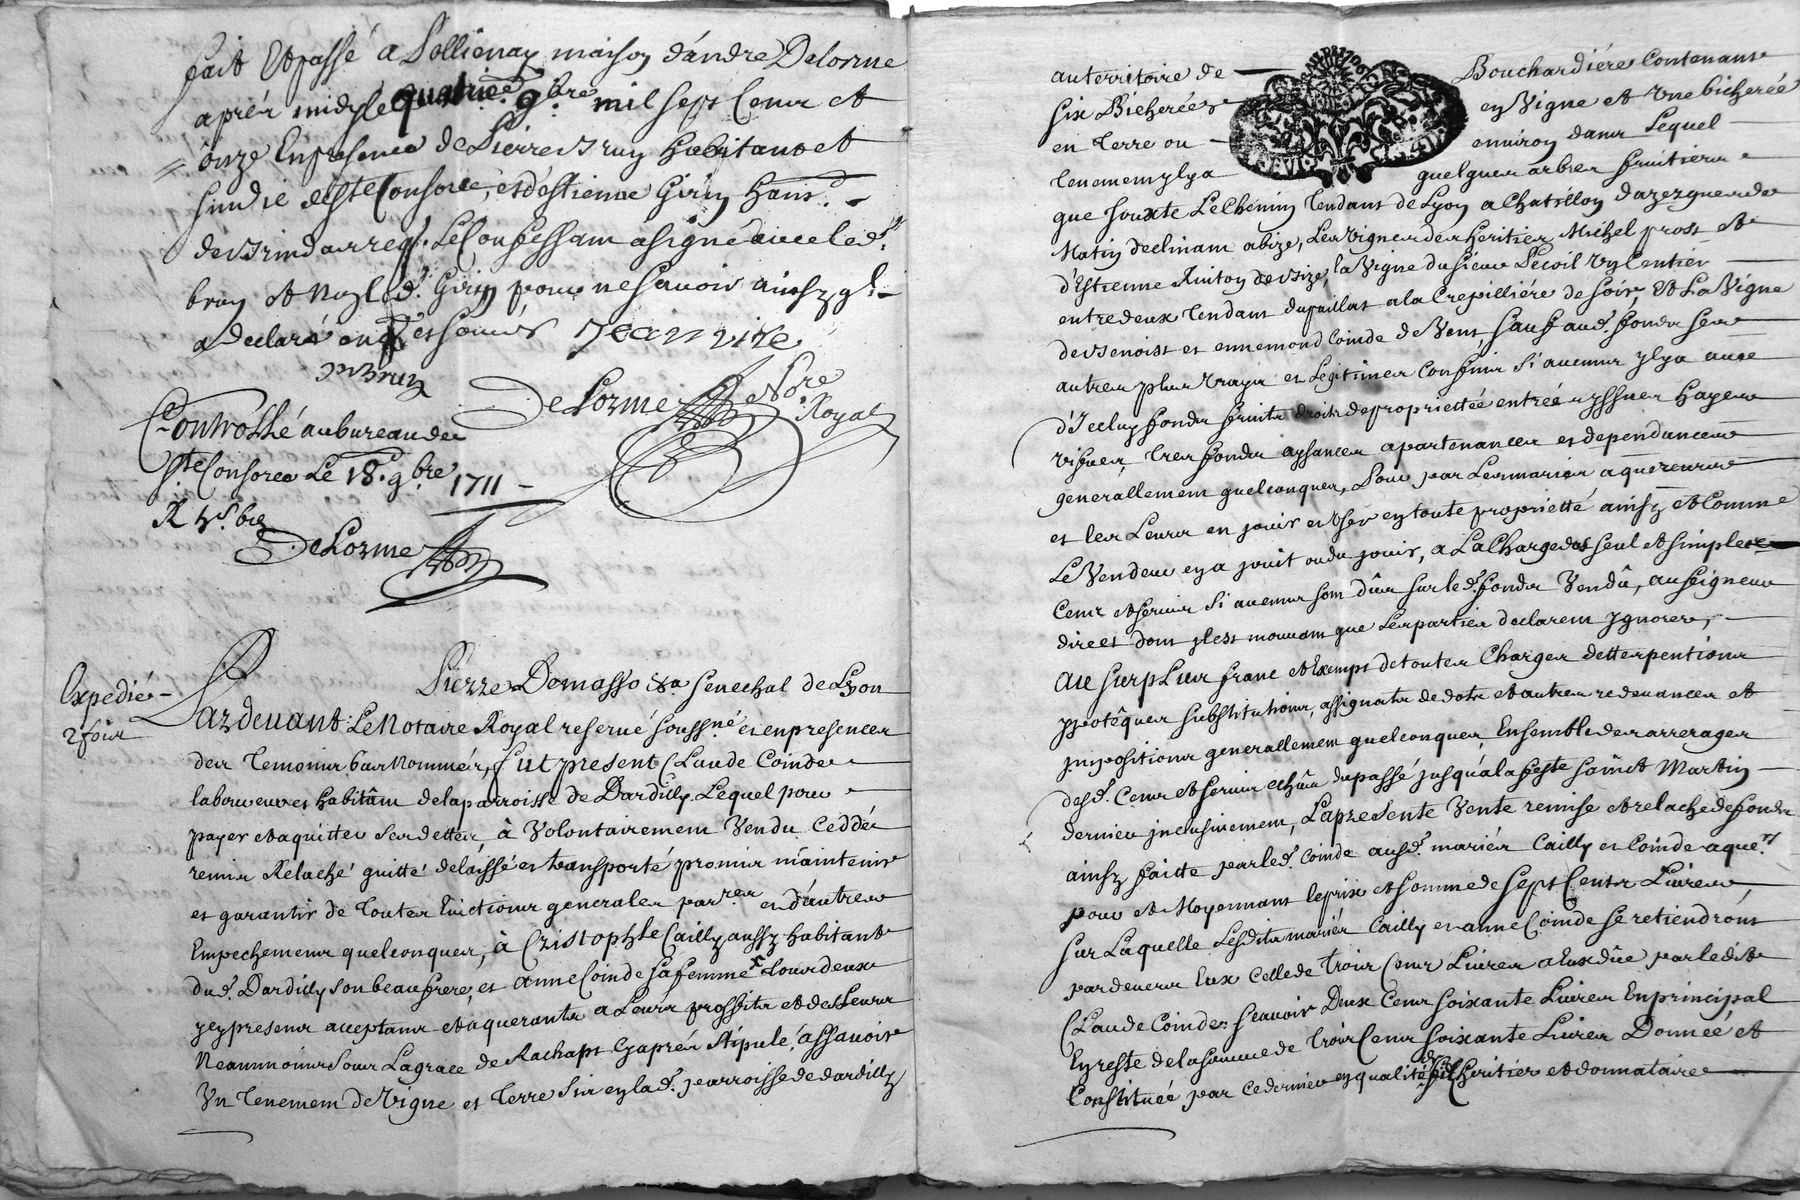 fait et passé a Pollionay maison d'andre Delorme
aprés midy le quatrie.e 9.bre mil sept Cent et
onze En presence de Pierre Bruy habitant et
sindic de S.te Consorce, et d'estienne Giriy
de Brindas req.s Le Confessant a signé avec led.t
bruy et noz led.t Giriy pour ne sçavoir ainsy q.l
a declaré enquis et sommés Jean vire
P Bruy
DeLorme No.re Royal
Controllé au bureau de
S.te Consorce Le 18. 9.bre 1711
DeLorme
Expedié
2 fois
Pierre Demasso sénéchal de Lyon
Pardevant Le Notaire Royal reservé souss.né et en presences
des Temoins bas Nommés, fut present Claude Coinde
laboureur et habitant de la parroisse de Dardilly Lequel pour
payer et aquitter ses dettes à Volontairement Vendu Ceddé
remis Relaché quitté delaissé et transporté promis maintenir
et garantir de Toutes Evictions generales et d'autres
Empechements quelconques, à Cristophle Cailly aussy habitant
dud. Dardilly son beaufrere, et anne Coinde sa femme Tous deux
y presents acceptants et aquerants a Leurs proffits et des Leurs
Neanmoins sous La grace de Rachapt Cy aprés stipulé, assavoir
Un Tenement de Vigne et Terre sis en lad. parroisse de dardilly
au territoire de Bouchardiére Contenant
six Bicherées en Vigne et une bicherée
en Terre ou environ dans Lequel
Tenement y a quelques arbres fruitiers
que jouxte Le Chemin Tendant de Lyon a Chatillon d'azergues de
Matin declinant a bize, Les Vignes des heritiers Michel prost et
d'Estienne de bize, la Vigne du sieur un sentier
entredeux Tendant du paillet a la Crepilliére de soir, et La Vigne
de Benoist et ennemond Coinde de Vent, sauf aud. fonds ses
autres plus vrays et Legitimes Confins si aucuns y a avec
d'Iceluy fonds fruits droits de proprietée entrées yssues hayes
vifues, Tres fonds aysances apartenances et dependances
generallement quelconques, Pour par Les mariés aquereurs
et les Leurs en jouir et user en toute proprietté ainsy et Comme
Le Vendeur en a jouit ou du jouir, a La Charge du seul et simple
Cens et servis si aucuns sont dûs sur led. fonds Vendû, au seigneur
direct dont il est mouvant que Les parties declarent Ignorer,
au surplus franc et Exempt de toutes Charges dettes pentions
ypotêques substitutions, assignats de dots et autres redevances et
jmpositions generallement quelconques, Ensemble des arrerages
desd. Cens et servis echûs du passé jusqu'a la feste sainct Martin
dernier jnclusivement, La presente Vente remise et relache de fonds
ainsy faitte par led. Coinde ausd. mariés Cailly et Coinde aque.rs
pour et Moyennant le prix et somme de sept Cents Livres
sur Laquelle Lesdits mariés Cailly et anne Coinde se retiendront
pardevers Eux Celle de Trois Cents Livres a Eux dûe par ledit
Claude Coinde, sçavoir Deux Cens soixante Livres En principal
En reste de la somme de Trois Cens soixante Livres Donnée et
Constituée par ce dernier en qualité fils heritier et donnataire